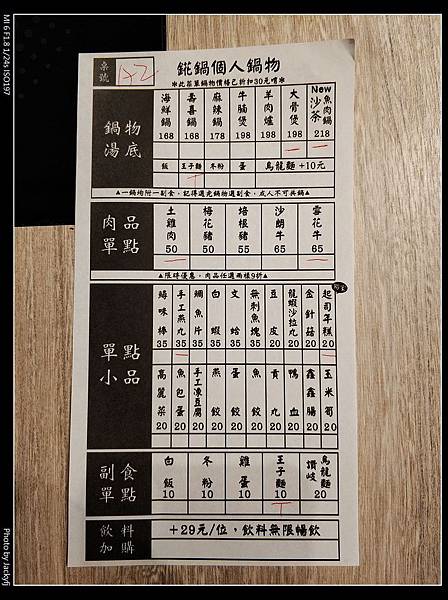 MI 6 F1.8 1/24s ISO197
桌號 A2
錵鍋個人鍋物
*此菜單鍋物價格已折扣30元唷*
鍋物湯底
海鮮鍋 168
壽喜鍋 168
麻辣鍋 178
牛腩煲 198
羊肉爐 198
大骨煲 198
New 沙茶魚肉鍋 218
飯 王子麵 冬粉 蛋 烏龍麵+10元
▲一鍋均附一副食,記得選完鍋物選副食,成人不可共鍋▲
肉品單點
土雞肉 50
梅花豬 50
培根豬 55
沙朗牛 65
雪花牛 65
▲限時優惠,肉品任選兩樣9折▲
單點小品
蟳味棒 35
手工燕丸 35
鯛魚片 35
白蝦 35
文蛤 35
無刺魚塊 35
豆皮 20
龍蝦沙拉丸 20
金針菇 20
起司年糕 20
高麗菜 20
魚包蛋 20
手工凍豆腐 20
燕餃 20
蛋餃 20
魚餃 20
貢丸 20
鴨血 20
鑫鑫腸 20
玉米筍 20
副食單點
白飯 10
冬粉 10
雞蛋 10
王子麵 10
讚岐烏龍麵 20
飲料加購
+29元/位,飲料無限暢飲
Photo by Jackyfj